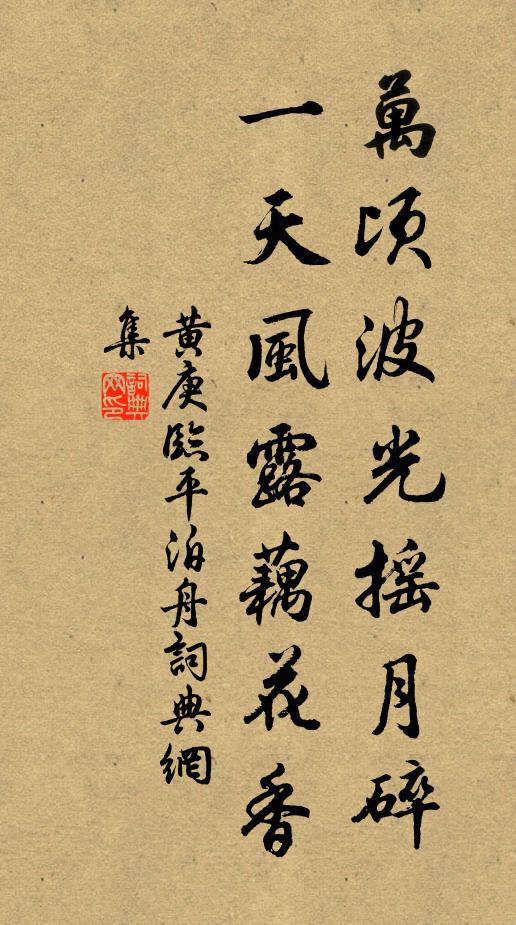 萬頃波光摇月碎
一天風露藕花香
黄庚臨平泊舟詞典網
集
詞典網印